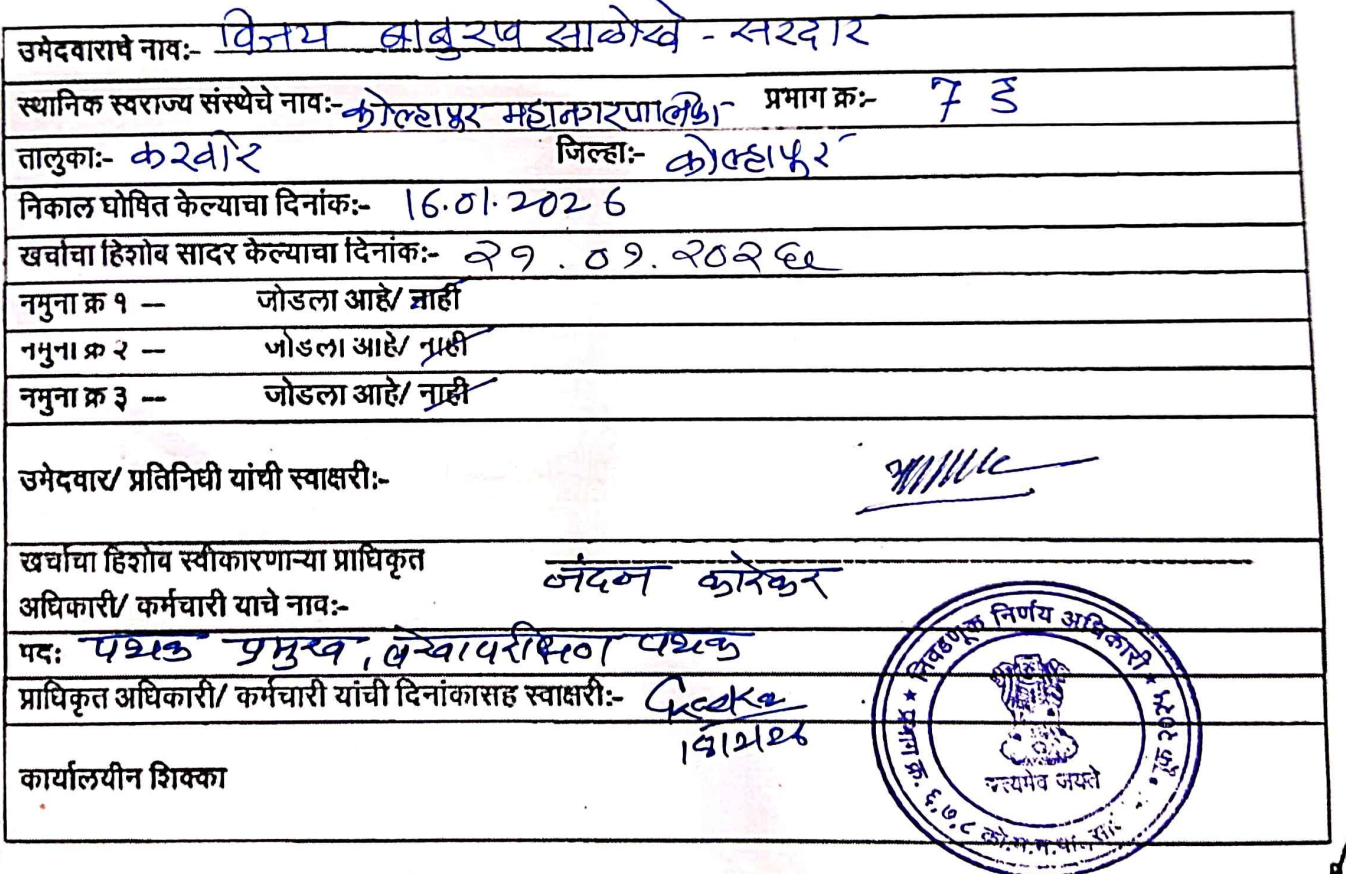 उमेदवाराचे नाव:- विजय बाबुराव साळोखे - सरदार
स्थानिक स्वराज्य संस्थेचे नाव:- कोल्हापूर महानगरपालिका प्रभाग क्र:- 7 ड
तालुका:- करवीर जिल्हा:- कोल्हापूर
निकाल घोषित केल्याचा दिनांक:- 16.01.2026
खर्चाचा हिशोब सादर केल्याचा दिनांक:- २१.०१.२०२६
नमुना क्र १ – जोडला आहे/ नाही
नमुना क्र २ – जोडला आहे/ नाही
नमुना क्र ३ – जोडला आहे/ नाही
उमेदवार/ प्रतिनिधी यांची स्वाक्षरी:-
खर्चाचा हिशोब स्वीकारणाऱ्या प्राधिकृत
अधिकारी/ कर्मचारी याचे नाव:- नंदन कारेकर
पद: पथक प्रमुख, लेखापरीक्षण पथक
प्राधिकृत अधिकारी/ कर्मचारी यांची दिनांकासह स्वाक्षरी:-
कार्यालयीन शिक्का
निवडणूक निर्णय अधिकारी
प्रभाग क्र. ६,७,८ को.म.न.पा.
सत्यमेव जयते